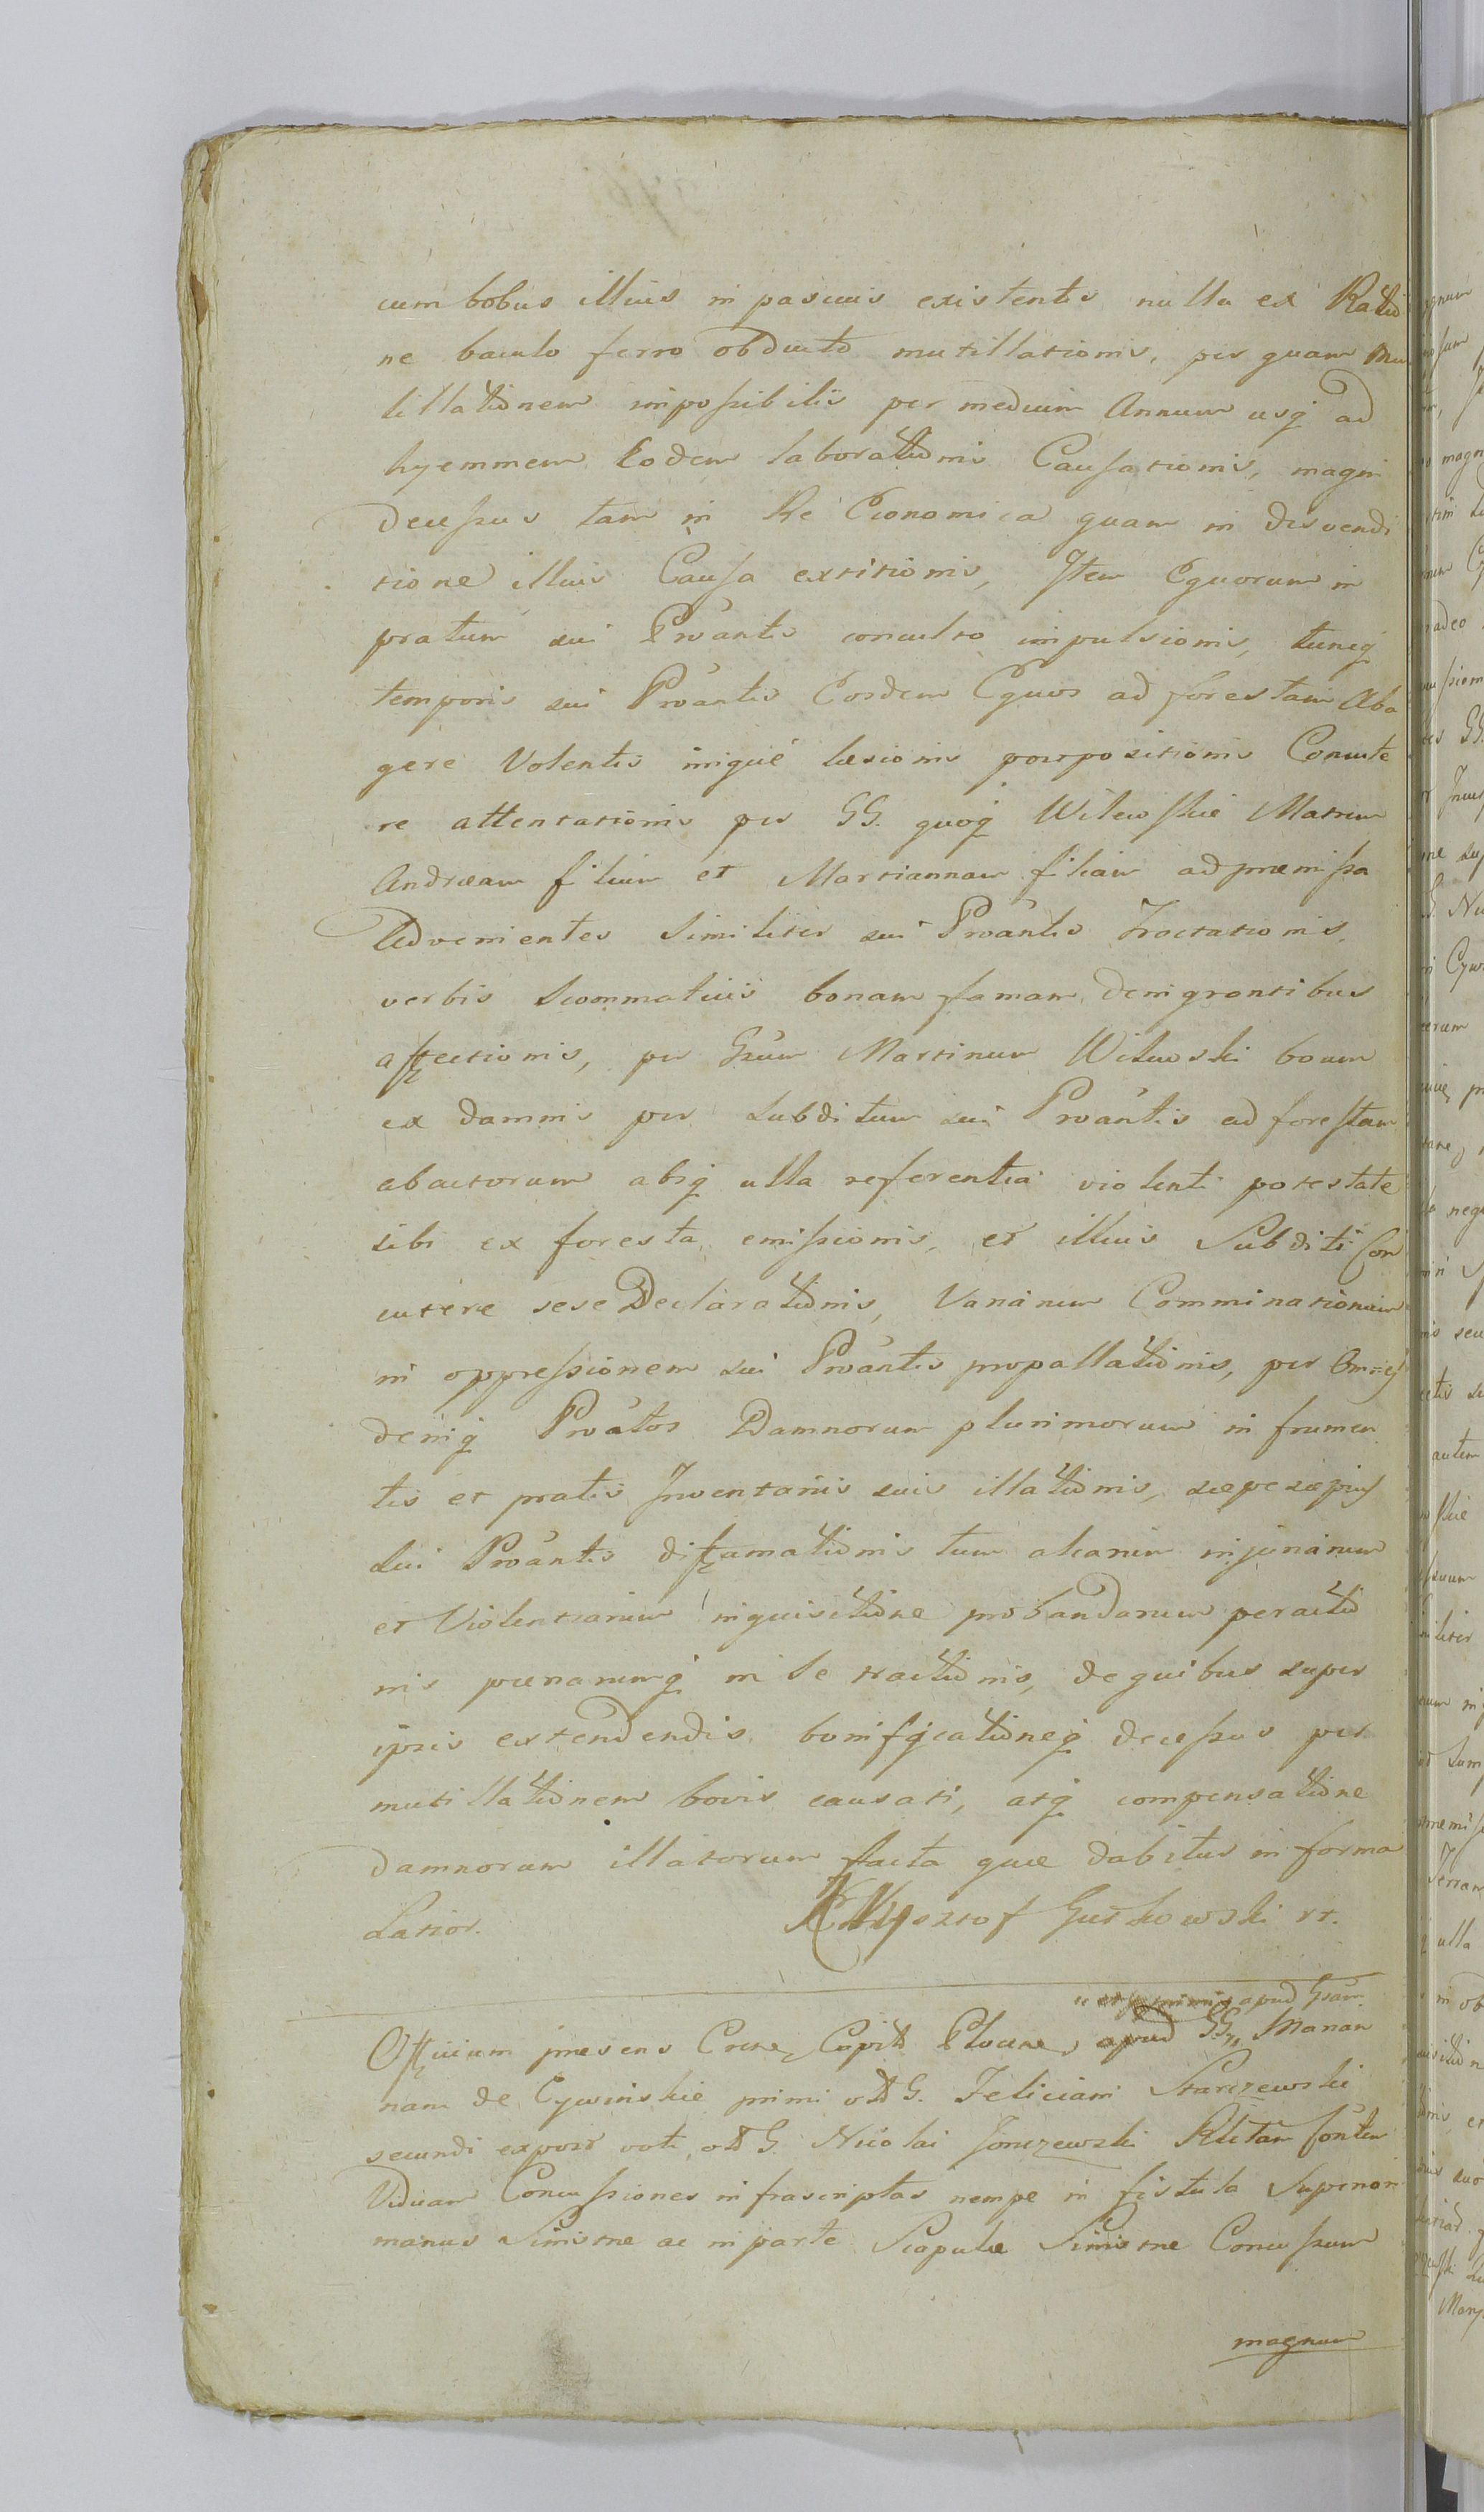 cum bobus illius in pascuis existentis nulla ex Ratio
ne baculo ferro obducto mutillationis, per quam Mu
tillationem impossibilis per medium Annum usq ad
hyemmem Eodem laborationis Causationis, magni
decessus tam in Re Economica quam in disvendi
tione illius Causa extitionis, Item Equorum in
pratum sui Proántis consulto impulsionis, tuncq
temporis sui Proántis Eosdem Equos ad forestam Aba
gere Volentis iniqué læsionis postpositionis Concute
re attentationis per GG. quoq Witewskie Matrem
Andræam filium et Martiannam filiam ad præmissa
Advenientes Similiter sui Proántis Tractationis,
verbis Scommaticis bonam famam denigrantibus
affectionis, per Gsum Martinum Witewski boum
ex damnis per subditum sui Proántis ad forestam
abactorum absq ulla referentia violenti potestate
sibi ex foresta emissionis, et illius Subditi Con
cutere sese Declarationis, Variarum Comminationum
in oppressionem sui Proántis propallationis, per Omnes
deniq Proátos Damnorum plurimorum in frumen
tis et pratis Inventariis suis illationis, sæpesæpius
sui Proántis diffamationis tum aliarum injuriarum
et Violentiarum inquisitione probandarum peractio
nis pœnarumq in se tractionis, de quibus super
ipsis extendendis bonifficationeq decessus per
mutillationem bovis causati, atq compensatione
damnorum illatorum facta quæ dabitur in forma
Latior. Krzysztof Gutkowski rt.
apud Gsam
Officium præsens Crense Capitle Plocense apud GG Marian
nam de Cywinskie primi olt G. Feliciani Starczewski
secundi expost voti, olt G. Nicolai Jonczewski Relictam Contem
Viduam Concussiones infrascriptas nempe in fistula Superiori
manus Sinistræ ac in parte Scapulæ Sinistræ Concussum
magnum